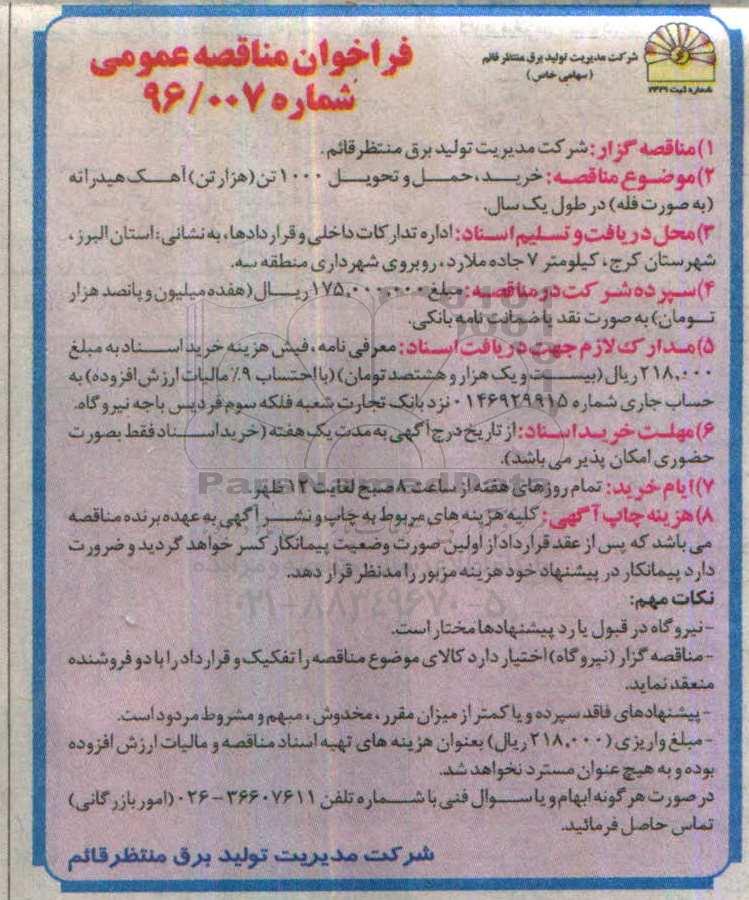 شرکت مدیریت تولید برق منتظر قائم
(سهامی خاص)
شماره ثبت ۲۳۲۹
فراخوان مناقصه عمومی
شماره ۹۶/۰۰۷
۱)مناقصه گزار: شرکت مدیریت تولید برق منتظرقائم.
۲)موضوع مناقصه: خرید، حمل و تحویل ۱۰۰۰ تن (هزار تن) آهک هیدراته
(به صورت فله) در طول یک سال.
۳)محل دریافت و تسلیم اسناد: اداره تدارکات داخلی و قراردادها، به نشانی: استان البرز،
شهرستان کرج، کیلومتر ۷ جاده ملارد، روبروی شهرداری منطقه سه.
۴)سپرده شرکت در مناقصه: مبلغ ۱۷۵,۰۰۰,۰۰۰ ریال (هفده میلیون و پانصد هزار
تومان) به صورت نقد یا ضمانت نامه بانکی.
۵)مدارک لازم جهت دریافت اسناد: معرفی نامه، فیش هزینه خرید اسناد به مبلغ
۲۱۸,۰۰۰ ریال (بیست و یک هزار و هشتصد تومان) (با احتساب ۹٪ مالیات ارزش افزوده) به
حساب جاری شماره ۰۱۴۶۹۲۹۹۱۵ نزد بانک تجارت شعبه فلکه سوم فردیس باجه نیروگاه.
۶)مهلت خرید اسناد: از تاریخ درج آگهی به مدت یک هفته (خرید اسناد فقط بصورت
حضوری امکان پذیر می باشد).
۷)ایام خرید: تمام روزهای هفته از ساعت ۸ صبح لغایت ۱۲ ظهر
۸)هزینه چاپ آگهی: کلیه هزینه های مربوط به چاپ و نشر آگهی به عهده برنده مناقصه
می باشد که پس از عقد قرارداد از اولین صورت وضعیت پیمانکار کسر خواهد گردید و ضرورت
دارد پیمانکار در پیشنهاد خود هزینه مزبور را مدنظر قرار دهد.
نکات مهم:
-نیروگاه در قبول یا رد پیشنهادها مختار است.
-مناقصه گزار (نیروگاه) اختیار دارد کالای موضوع مناقصه را تفکیک و قرارداد را با دو فروشنده
منعقد نماید.
-پیشنهادهای فاقد سپرده و یا کمتر از میزان مقرر، مخدوش، مبهم و مشروط مردود است.
-مبلغ واریزی (۲۱۸,۰۰۰ ریال) بعنوان هزینه های تهیه اسناد مناقصه و مالیات ارزش افزوده
بوده و به هیچ عنوان مسترد نخواهد شد.
در صورت هر گونه ابهام و یا سوال فنی با شماره تلفن ۳۶۶۰۷۶۱۱-۰۲۶ (امور بازرگانی)
تماس حاصل فرمائید.
شرکت مدیریت تولید برق منتظر قائم
ParsNamadData
۰۲۱-۸۸۳۴۹۶۷۰-۵